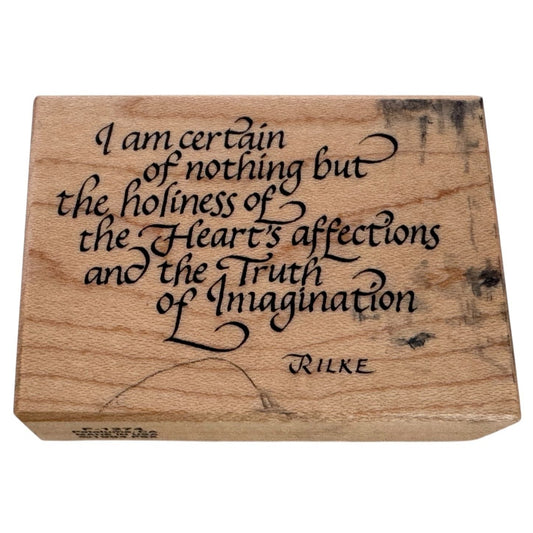 I am certain
of nothing but
the holiness of
the Heart's affections
and the Truth
of Imagination
RILKE
MADE IN USA